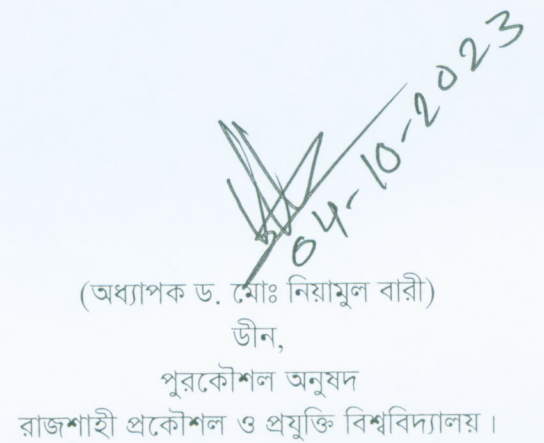 04-10-2023
(অধ্যাপক ড. মোঃ নিয়ামুল বারী)
ডীন,
পুরকৌশল অনুষদ
রাজশাহী প্রকৌশল ও প্রযুক্তি বিশ্ববিদ্যালয়।